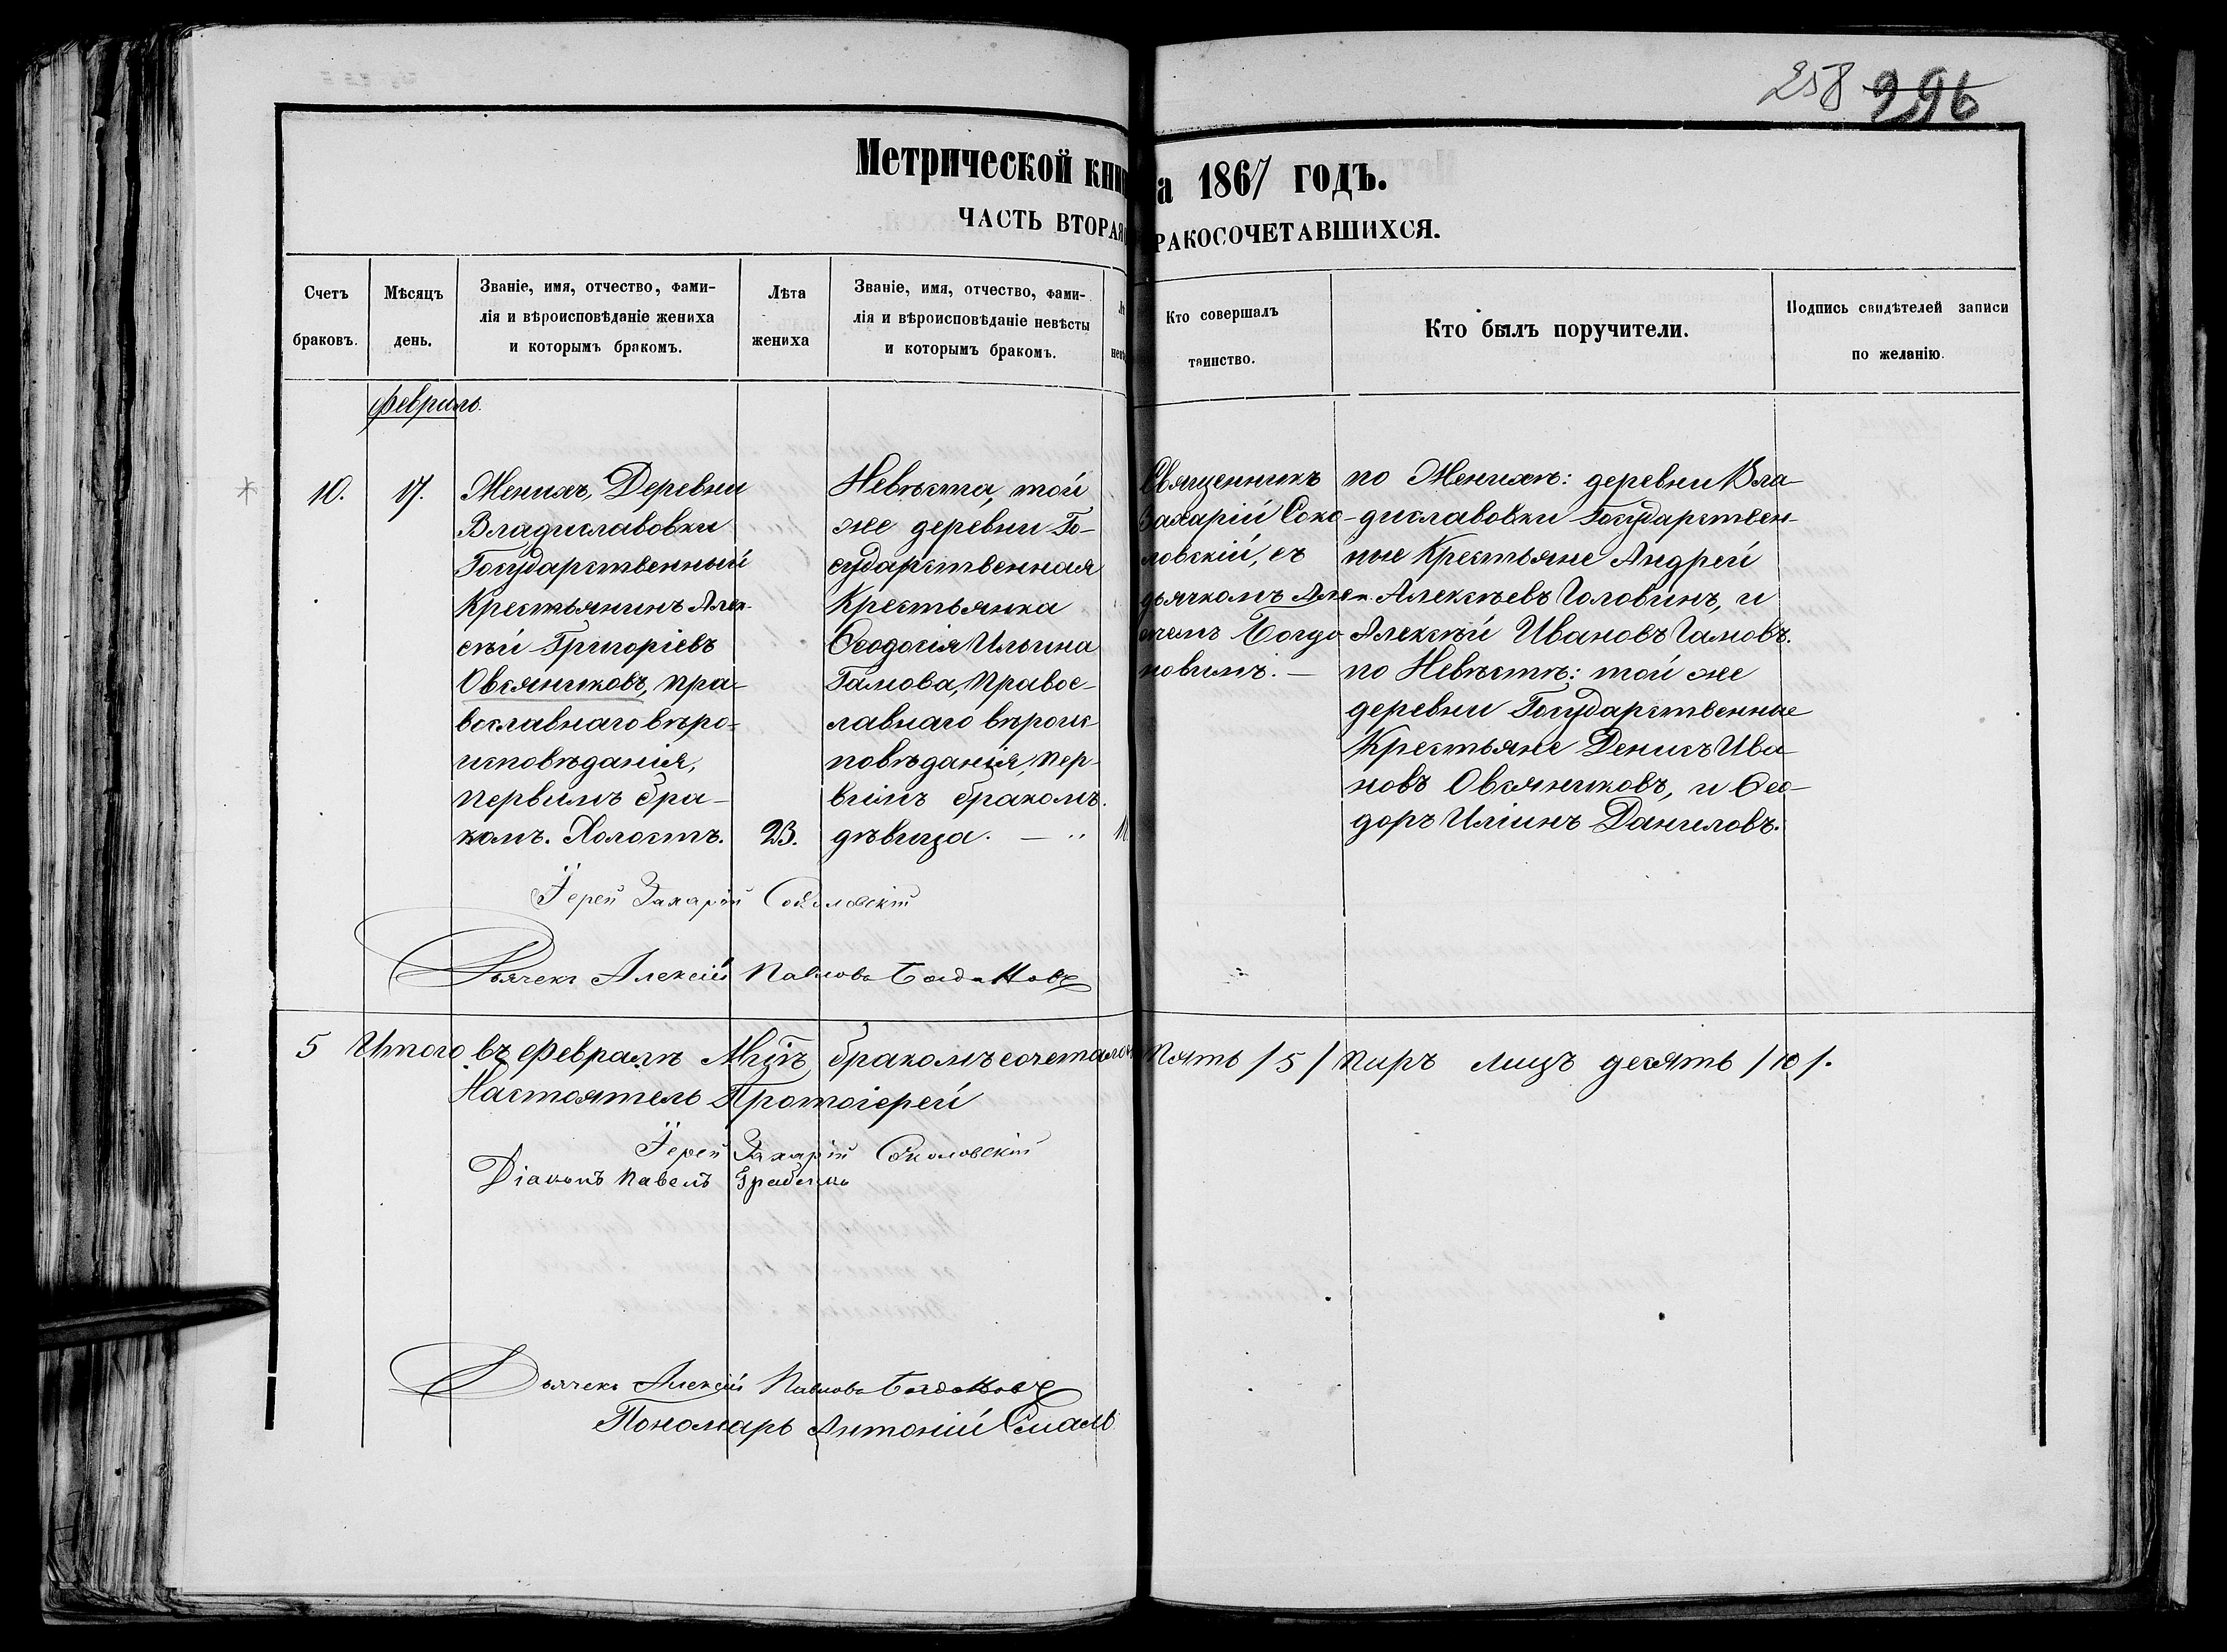 258 996
Метрической кни
а 1867 годъ.
ЧАСТЬ ВТОРАЯ
РАКОСОЧЕТАВШИХСЯ.
Счетъ браковъ.
Мѣсяцъ день.
Званіе, имя, отчество, фами-
лія и вѣроисповѣданіе жениха
и которымъ бракомъ.
Лѣта жениха
Званіе, имя, отчество, фами-
лія и вѣроисповѣданіе невѣсты
и которымъ бракомъ.
Кто совершалъ
таинство.
Кто былъ поручители.
Подпись свидѣтелей записи
по желанію.
Февраль.
10.
17.
Женихъ, Деревни
Владиславовки
Государственный
Крестьянинъ Алек-
сѣй Григоріевъ
Овсяниковъ, пра-
вославнаго вѣро-
исповѣданія,
первымъ бра-
комъ. Холостъ.
23.
Невѣста, той
же деревни Го-
сударственная
Крестьянка
Ѳеодосія Ильина
Гамова, Правос-
лавнаго вѣроис
повѣданія, пер-
вымъ бракомъ.
дѣвица. — "
Священникъ
Захарій Соко-
ловскій, съ
дьячкомъ Алек
сѣемъ Богда
новымъ. —
по Женихѣ: деревни Вла-
диславовки Государствен-
ные Крестьяне Андрей
Алексѣевъ Головинъ, и
Алексѣй Ивановъ Гамовъ.
по Невѣстѣ: той же
деревни Государственные
Крестьяне Денисъ Ива-
новъ Овсяниковъ, и Ѳео-
доръ Ильинъ Даниловъ.
Іерей Захарій Соколовскій
Дьячекъ Алексій Павловъ Богдановъ
5 Итого въ Февралѣ Мцѣ бракомъ сочеталос Пять /5/ паръ лицъ десять /10/.
Настоятель Протоіерей
Іерей Захарій Соколовскій
Діаконъ Павелъ
Дьячекъ Алексій Павловъ Богдановъ
Пономарь Антоній